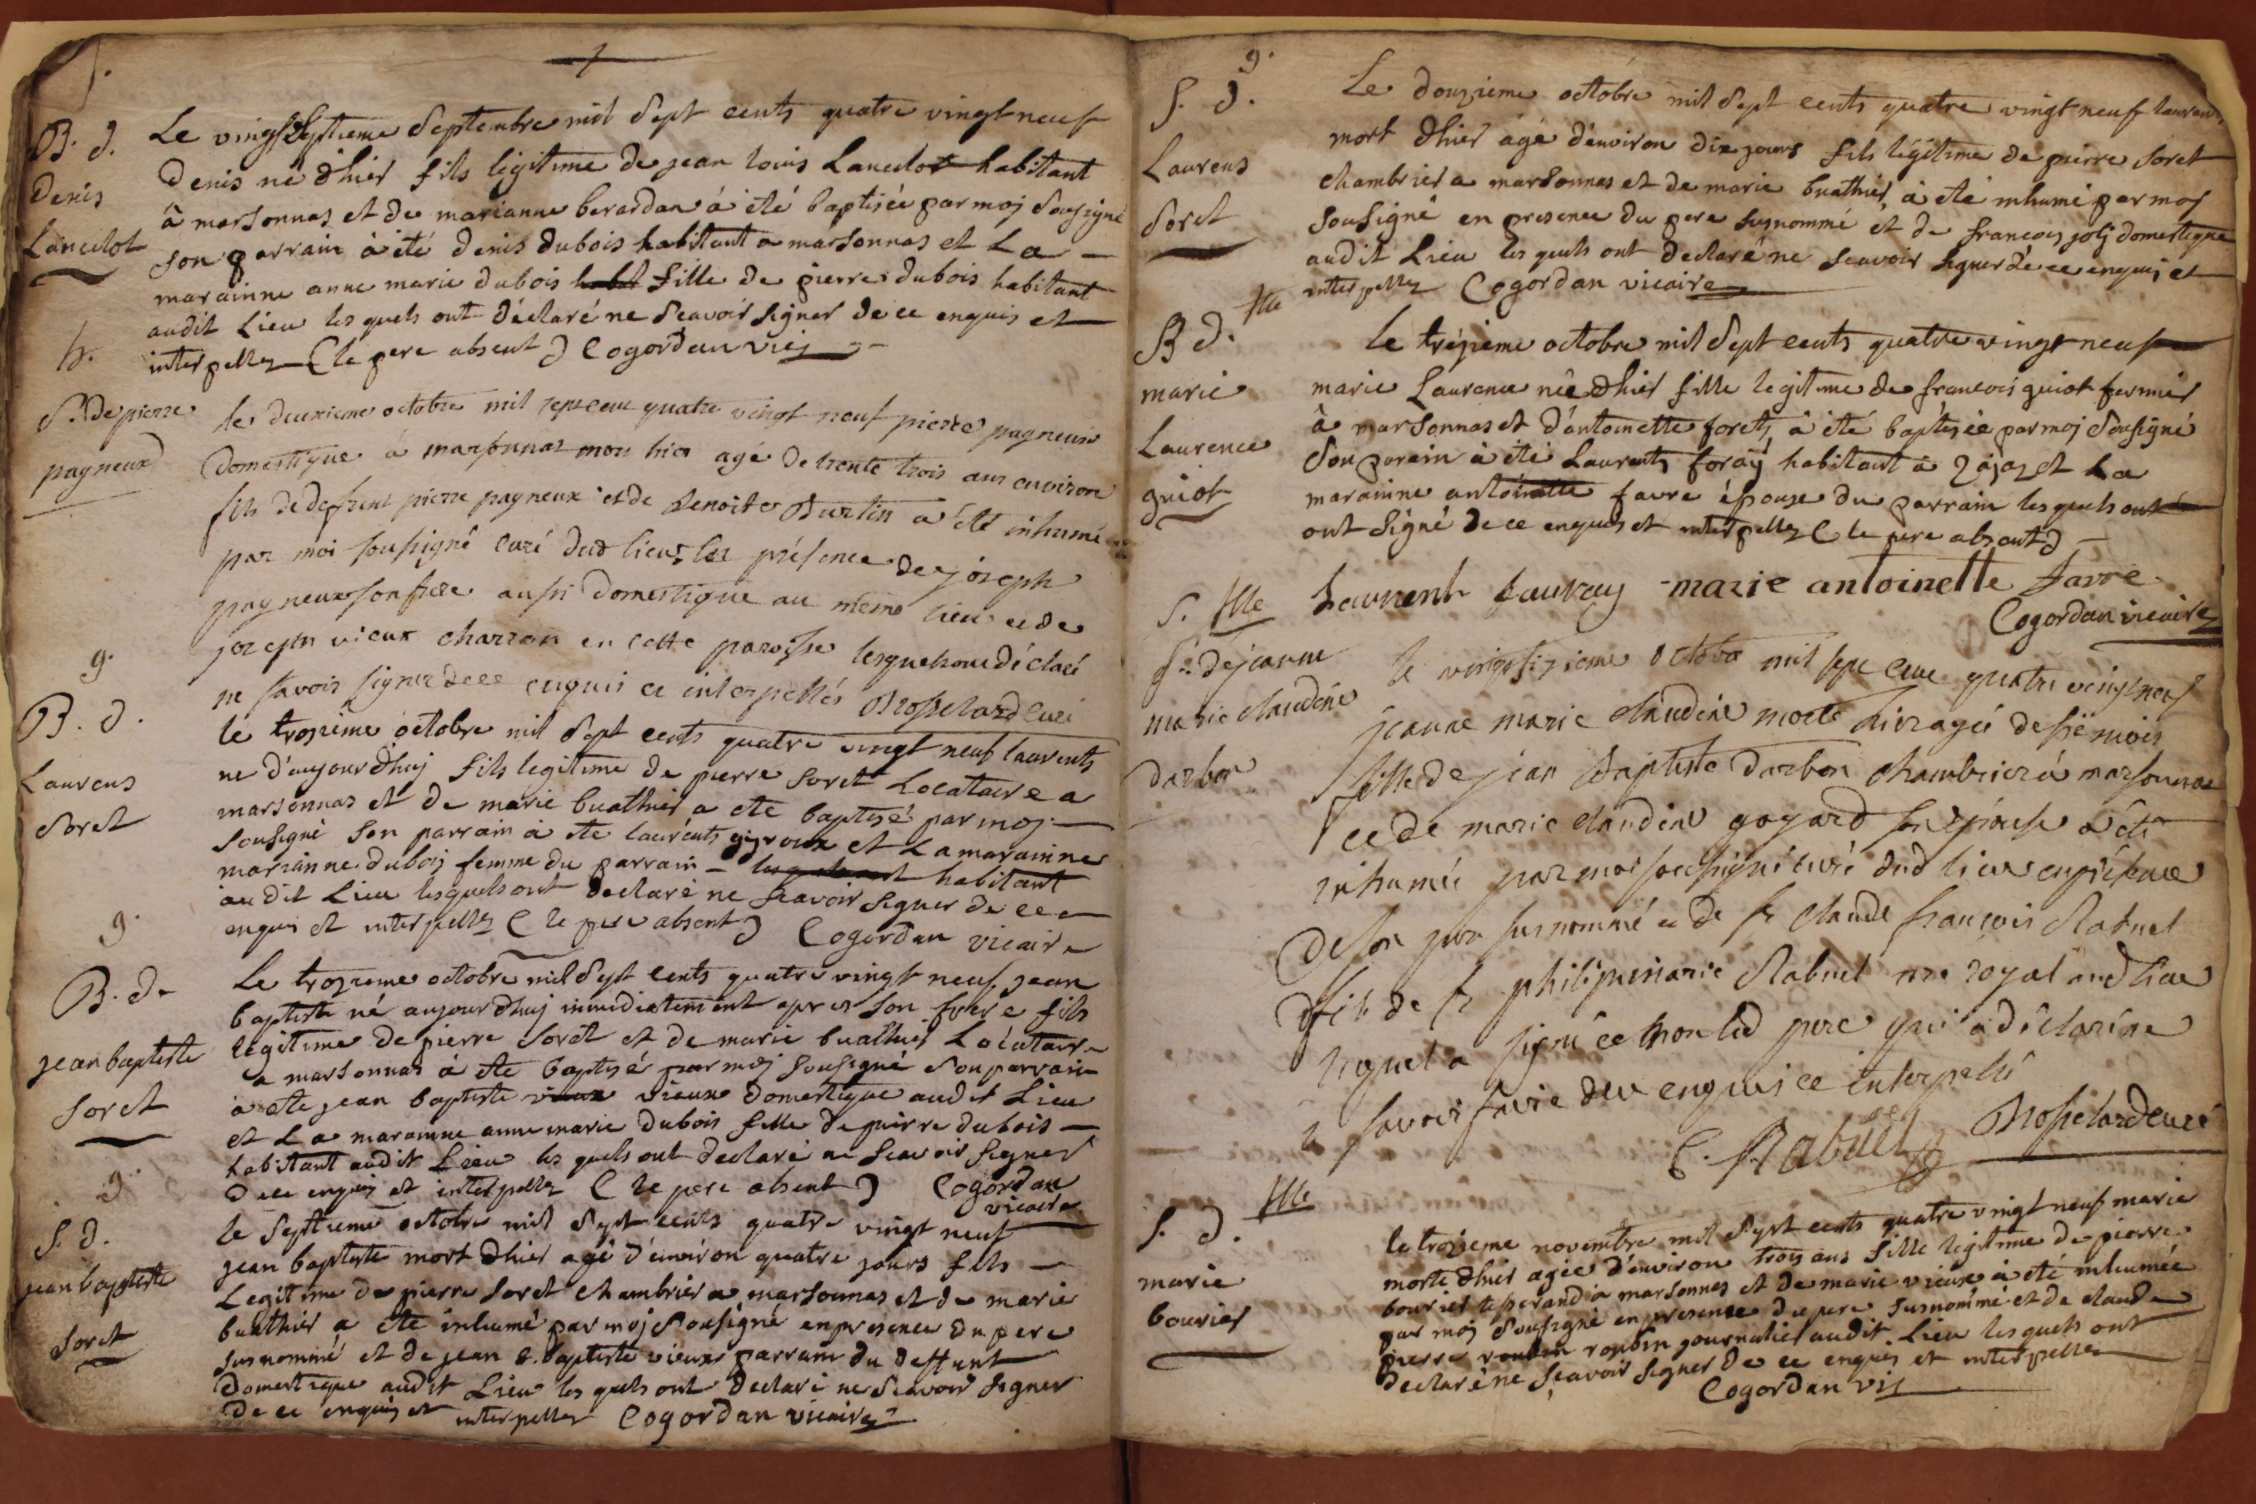 g.
B. d.
Denis
Lancelot
Le vingtseptieme septembre mil sept cents quatre vingt neuf
Denis né dhier fils légitime de jean louis Lancelot habitant
à marsonnas et de marianne berardan à été baptisée par moj sousigné
son parrain à été denis dubois habitant a marsonnas et La
marainne anne marie dubois habit fille de pierre dubois habitant
audit Lieu les quels ont déclaré ne scavoir signer de ce enquis et
interpellez (le pere absent) Cogordan vic
h.
S. de pierre
pagneux
le deuxieme octobre mil sept cent quatre vingt neuf pierre pagneux
domestique à marsonnas mort hier agé de trente trois ans environ
fils de defunt pierre pagneux et de Benoite Burtin a été inhumé
par moi soussigné curé dud lieu en présence de joseph
pagneux son frere aussi domestique au même lieu et de
joseph vieux charron en cette paroisse lesquels ont déclaré
ne savoir signer de ce enquis et interpellés Brosselard curé
g.
B. d.
Laurens
Soret
le trosieme octobre mil sept cents quatre vingt neuf laurents
ne d'aujourdhuj fils legitime de pierre soret Locataire a
marsonnas et de marie buathier a ete baptisé par moj
sousigné son parrain à ete laurents giroux et La marainne
marianne dubois femme du parrain les quels ont habitant
audit Lieu lesquels ont declaré ne scavoir signer de ce
enquis et interpellez (le pere absent) Cogordan vicaire
g.
B. d.
jean baptiste
Soret
Le trosieme octobre mil sept cents quatre vingt neuf jean
baptiste né aujourdhuj immediatement apres son frere fils
légitime de pierre soret et de marie buathier Locataire
a marsonnas à ete baptisé par moj sousigné son parrain
à ete jean baptiste vieux vieux domestique audit Lieu
et La marainne anne marie dubois fille de pierre dubois
habitant audit Lieu les quels ont declaré ne scavoir signer
de ce enquis et interpellez (le pere absent) Cogordan
vicaire
g.
S. d.
jean baptiste
Soret
le septieme octobre mil sept cents quatre vingt neuf
jean baptiste mort dhier agé d'environ quatre jours fils
Legitime de pierre soret chambrier a marsonnas et de marie
buathier a ete inhumé par moj sousigné en presence du pere
susnommé et de jean baptiste vieux parrain du deffunt
domestique audit Lieu les quels ont declaré ne scavoir signer
de ce enquis et interpellez Cogordan vicaire
g.
S. d.
Laurens
Soret
Le douzieme octobre mil sept cents quatre vingt neuf laurents
mort dhier agé d'environ dix jours fils légitime de pierre soret
chambrier a marsonnas et de marie buathier à été inhumé par moj
sousigné en presence du pere susnommé et de francois jolj domestique
audit Lieu les quels ont declaré ne scavoir signer de ce enquis et
interpellez Cogordan vicaire
flle
B d.
marie
Laurence
guiot
le trezieme octobre mil sept cents quatre vingt neuf
marie Laurence née dhier fille legitime de francois guiot fermier
à marsonnas et d'antoinette forets à été baptisée par moj sousigné
son parrain à été Laurents foray habitant à jajaz et La
marainne antoinette favre épouse du parrain les quels ont
ont signé de ce enquis et interpellez (le pere absent)
Laurent fauray marie antoinette favre
Cogordan vicaire
S. flle
S. de jeanne
marie claudine
darbon
le vingt sixieme octobre mil sept cent quatre vingt neuf
jeanne marie claudine morte hier agée de six mois
fille de jean Baptiste darbon chambrier à marsonnas
et de marie claudine goyard son épouse a été
inhumée par moi soussigné curé dud lieu en présence
de son pere susnommé et de sr claude françois Rabuel
fils de sr philipe marie Rabuel nre royal aud lieu
lequel a signé et non led pere qui a déclaré ne
le savoir faire de ce enquis et interpellé
C. Rabuel Brosselard curé
flle
S. d.
marie
bourier
le trosieme novembre mil sept cents quatre vingt neuf marie
morte dhier agée d'environ trois ans fille legitime de pierre
bourier tisserand à marsonnas et de marie vieux à été inhumée
par moj sousigné en presence du pere susnommé et de claude
pierre roubin roubin journalier audit Lieu les quels ont
declaré ne scavoir signer de ce enquis et interpellez
Cogordan vic